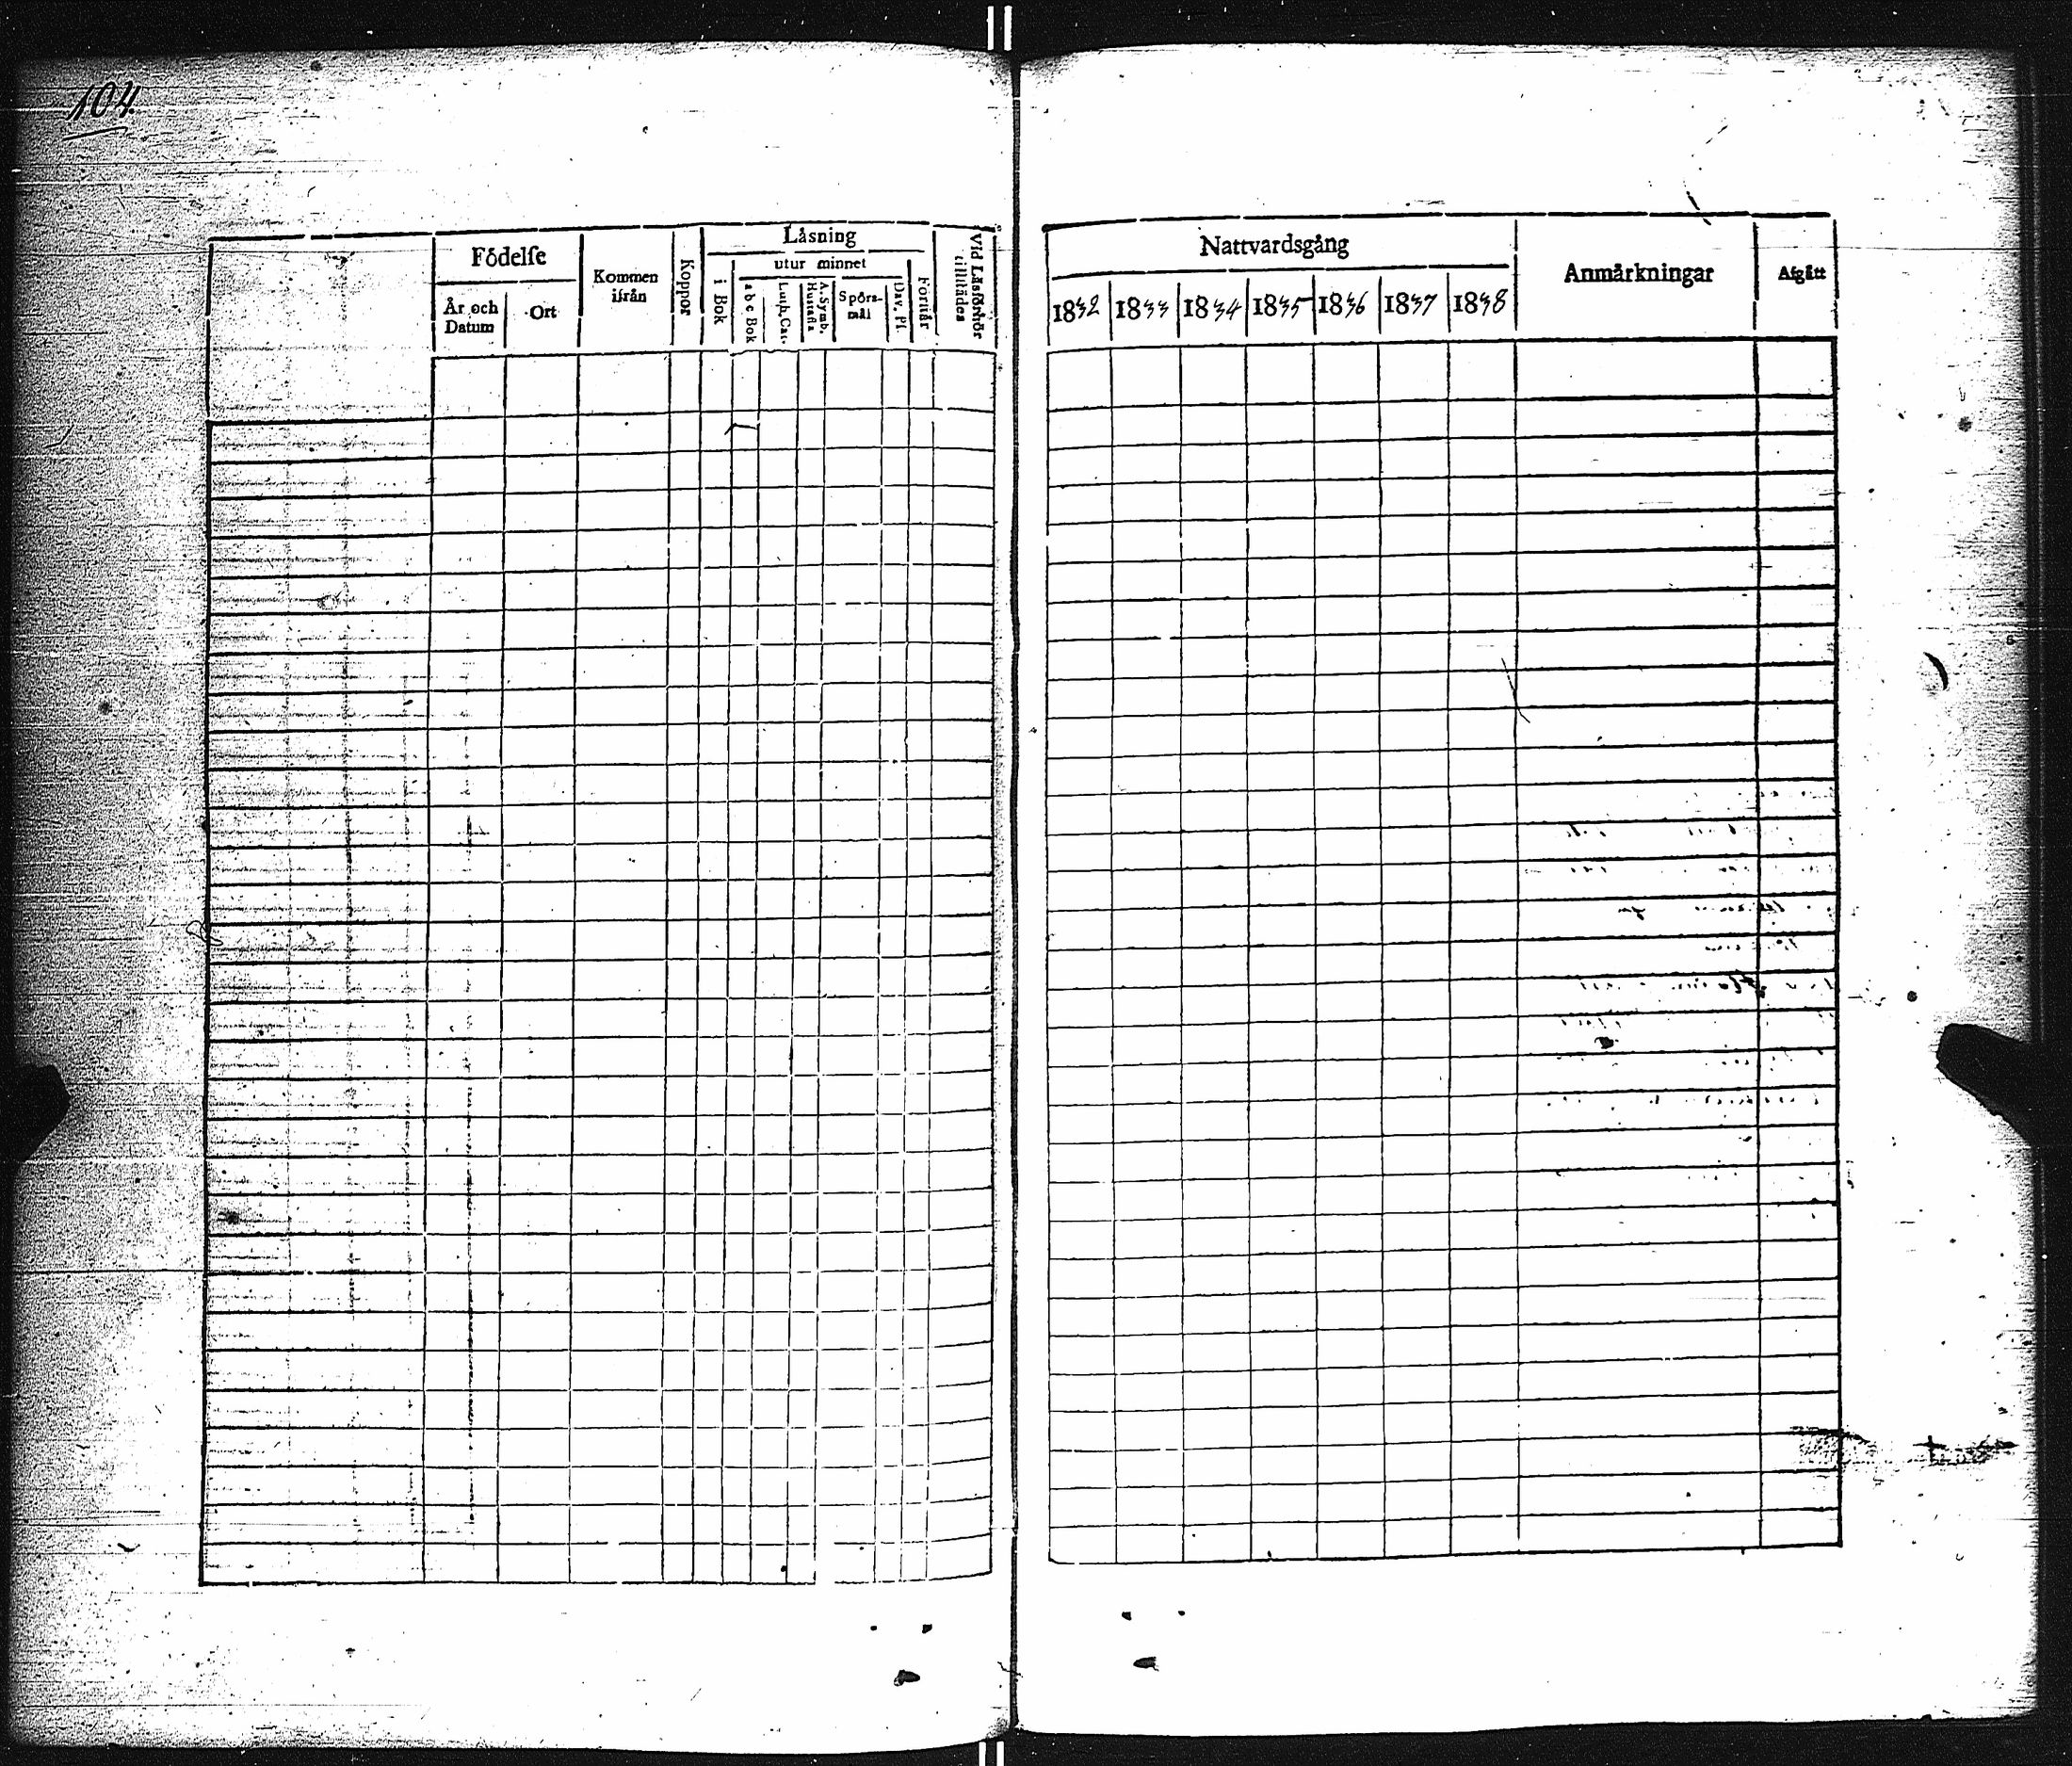 104.
Födelse
År och Datum
Ort
Kommen ifrån
Koppor
Läsning
i Bok
utur minnet
a b c Bok
Luth. Cat.
A. Symb. Hustafla
Spörsmål
Dav. Ps.
Förstår
Vid Läsförhör tillstädes
Nattvardsgång
1832 1833 1834 1835 1836 1837 1838
Anmärkningar
Afgått